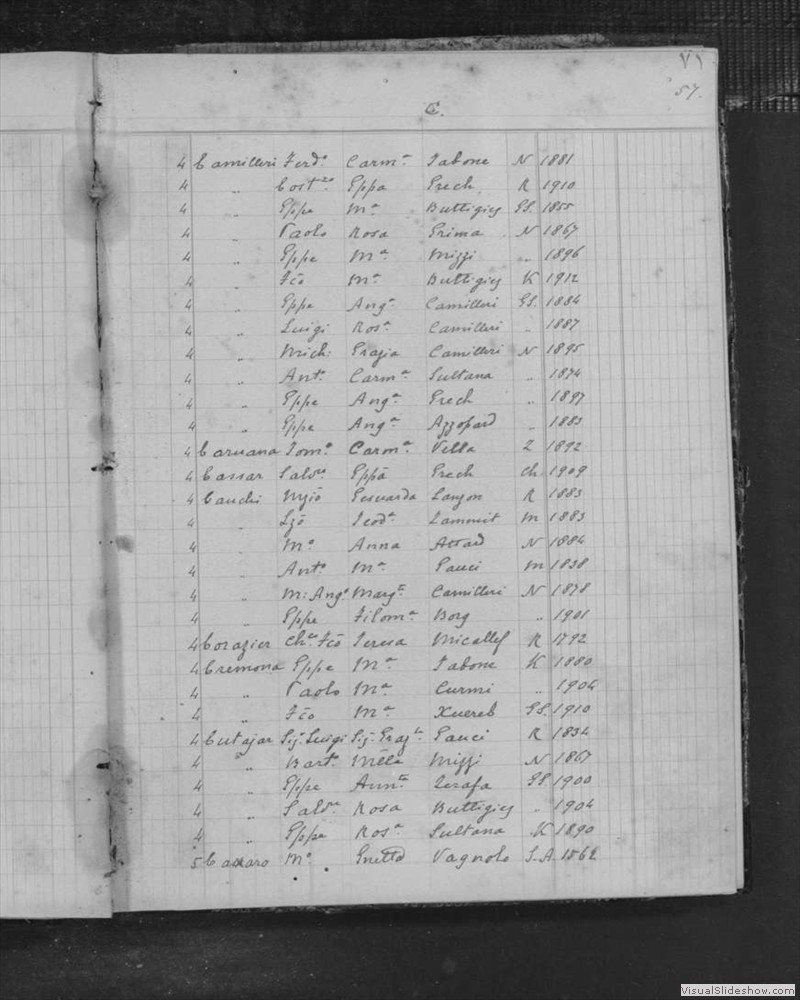 57.
C.
4 Camilleri Ferdo Carma Tabone N 1881
4 „ Costno Gppa Grech R 1910
4 „ Gppe Ma Buttigieg GS. 1855
4 „ Paolo Rosa Grima N 1867
4 „ Gppe Ma Mizzi „ 1896
4 „ Fco Ma Buttigieg K 1912
4 „ Gppe Anga Camilleri GS. 1884
4 „ Luigi Rosa Camilleri „ 1887
4 „ Mich: Grazia Camilleri N 1895
4 „ Anto Carma Sultana „ 1874
4 „ Gppe Anga Grech „ 1897
4 „ Gppe Anga Azzopard „ 1883
4 Caruana Tomo Carma Vella Z 1892
4 Cassar Salvre Gppa Grech Ch. 1909
4 Cauchi Gesuarda Lanzon R 1883
4 „ Lzo Teoda Zammit M 1883
4 „ Mo Anna Attard N 1884
4 „ Anto Ma Pauci M 1838
4 „ M: Ango Margta Camilleri N 1878
4 „ Gppe Filoma Borg „ 1901
4 Corazier Chco Fco Teresa Micallef R 1792
4 Cremona Gppe Ma Tabone K 1880
4 „ Paolo Ma Curmi „ 1904
4 „ Fco Ma Xuereb GS. 1910
4 Cutajar Sig. Luigi Sig. Grazta Pauci R 1834
4 „ Barto Mela Mizzi N 1867
4 „ Gppe Annta Zerafa GS 1900
4 „ Salvre Rosa Buttigieg „ 1904
4 „ Gppe Rosa Sultana K 1890
5 Mo Vagnolo S.A. 1862
VisualSlideshow.com